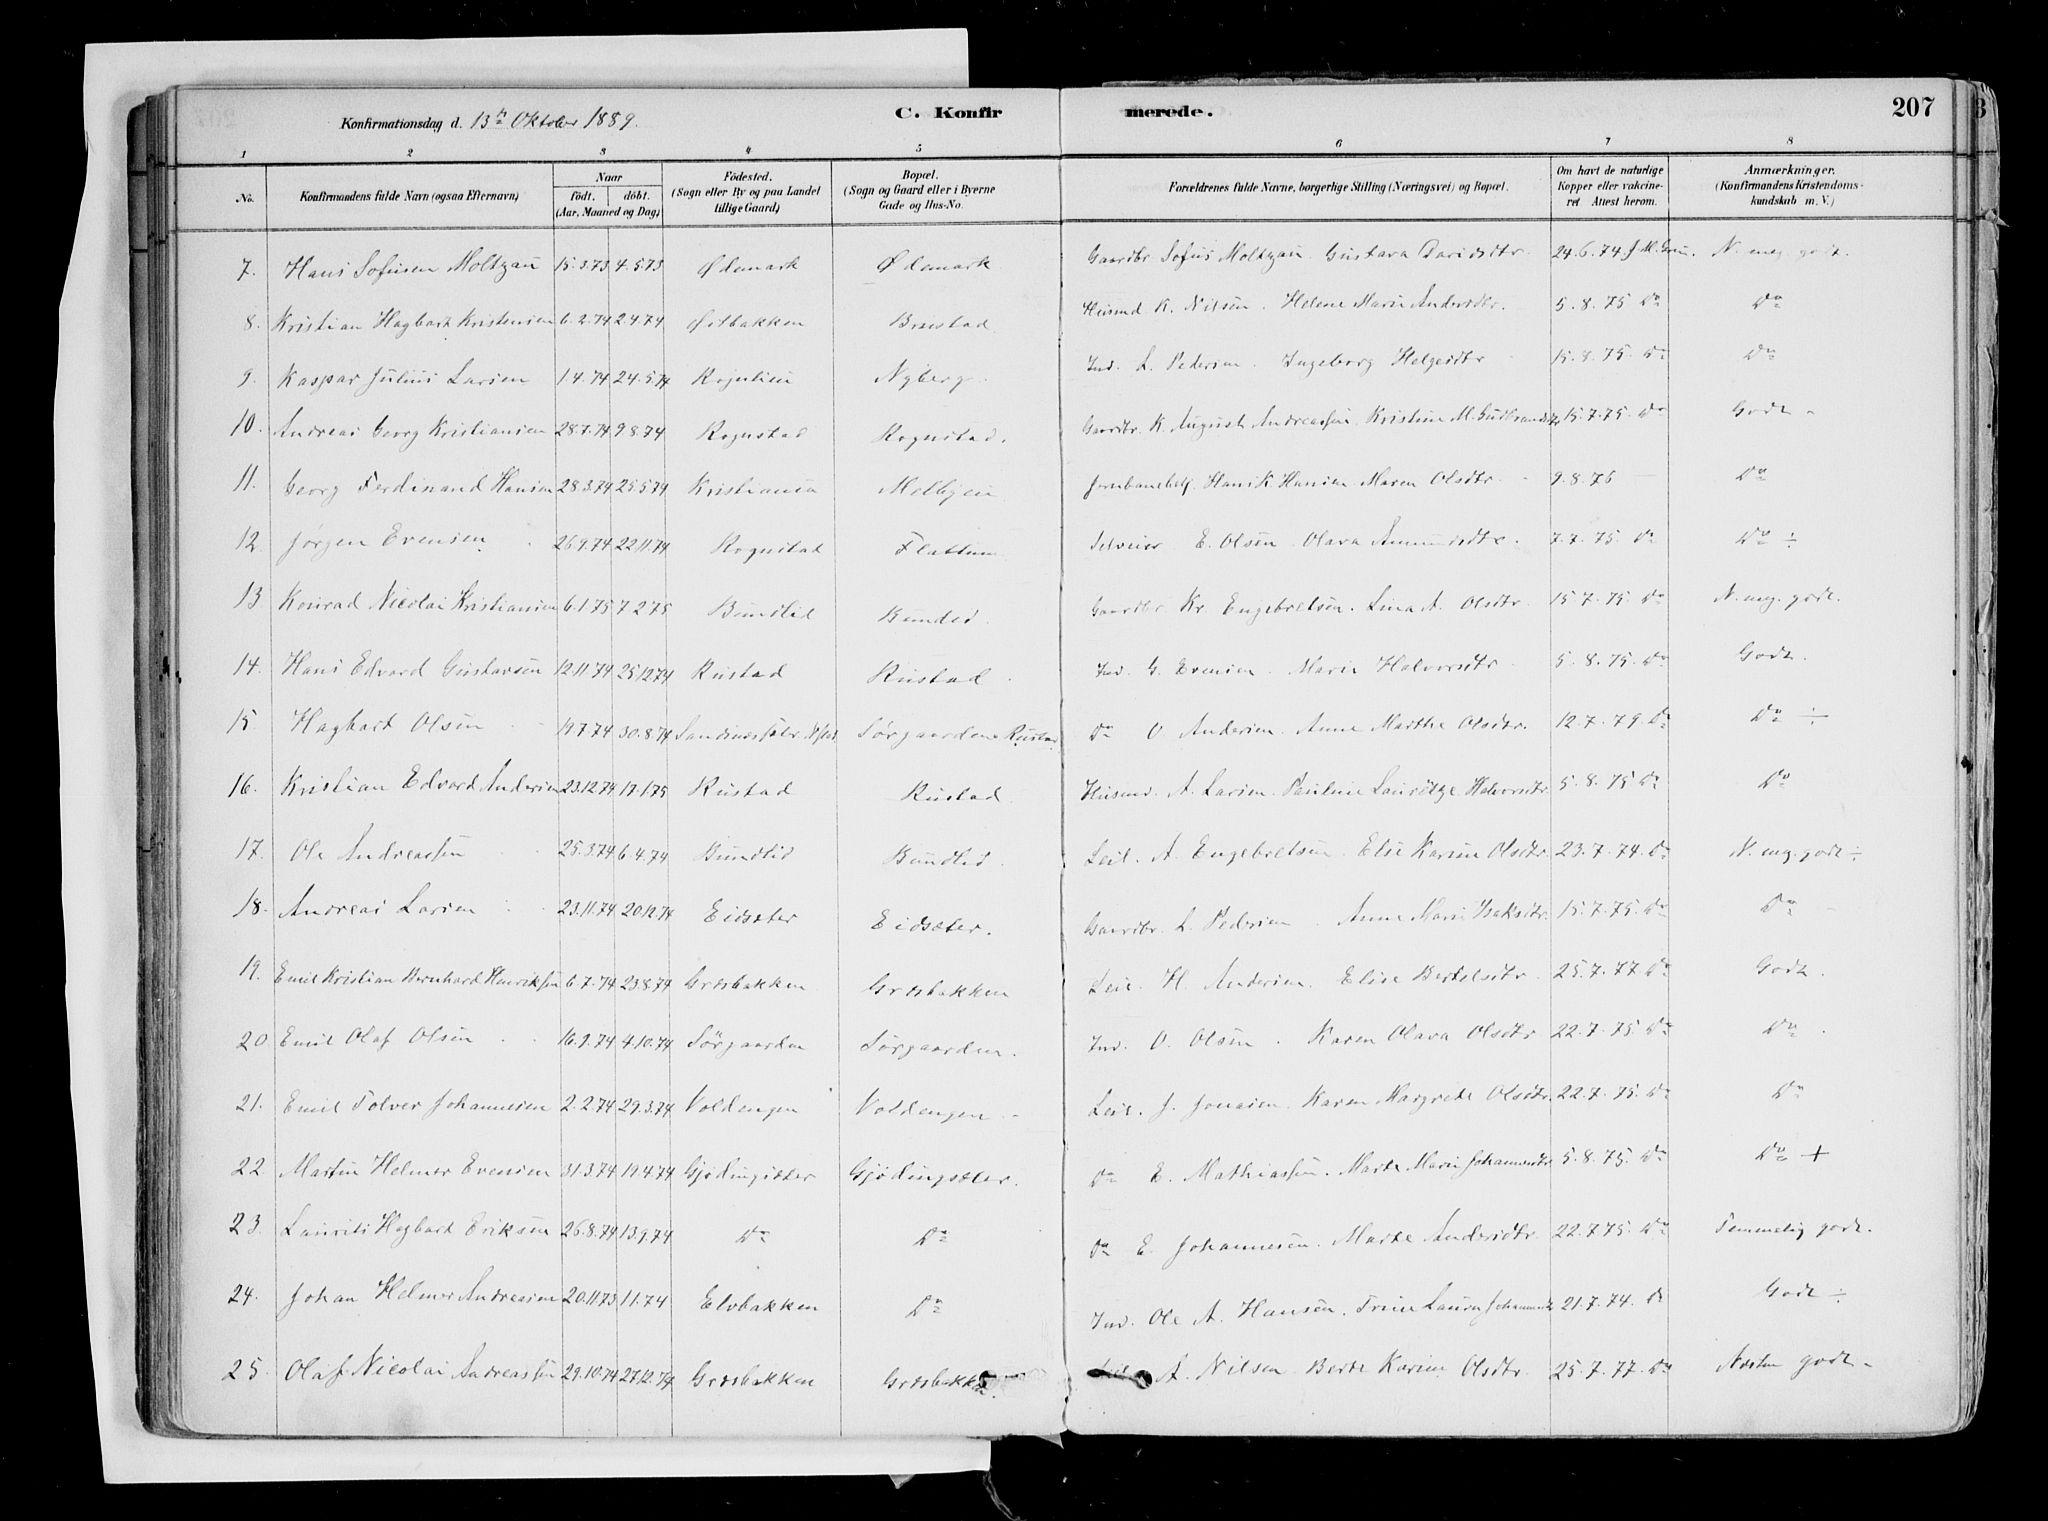 Konfirmationsdag d. 13de Oktober 1889. C. Konfir merede. 207
1 2 3 4 5 6 7 8
No. Konfirmandens fulde Navn (ogsaa Efternavn) Naar födt. döbt. (Aar, Maaned og Dag) Födested. (Sogn eller By og paa Landet tillige Gaard) Bopæl. (Sogn og Gaard eller i Byerne Gade og Hus-No. Forældrenes fulde Navne, borgerlige Stilling (Næringsvei) og Bopæl. Om havt de naturlige Kopper eller vakcineret Attest herom. Anmærkninger. (Konfirmandens Kristendomskundskab m. V.)
7. Hans Sofusen Moltzau 15.3.73 4.5.73 Ødemark Ødemark Gaardbr. Sofus Moltzau. Gustava Davidsdtr. 24.6.74 N. meg. godt.
8. Kristian Hagbart Kristensen 6.2.74 2.4.74 Husmd K. Nilsen. Helene Marie Andersdtr. 5.8.75 Do Do
9. Kaspar Julius Larsen 1.4.74 24.5.74 Nyberg. Ind. L. Pedersen. Ingeborg Helgesdtr 15.8.75. Do Do
10. Andreas Georg Kristiansen 28.7.74 9.8.74 Rognstad Rognstad. Gaardbr. K. August Andreassen. Kristine M. Gudbrandsdtr 15.7.75. Do Godt
11. Georg Ferdinand Hansen 28.3.74 25.5.74 Kristiania Jernbanebetj. Hans K. Hansen Maren Olsdtr. 9.8.76 Do
12. Jørgen Evensen 26.9.74 22.11.74 Rognstad Flattum Selveier E. Olsen. Olava Amundsdtr. 7.7.75. Do Do ÷
13 Konrad Nicolai Kristiansen 6.1.75 7.2.75 Bundlid Bundlid. Gaardbr. Kr. Engebretsen. Lina A. Olsdtr. 15.7.75. Do N. meg. godt.
14. Hans Edvard Gustavsen 12.11.74 25.12.74 Rustad Rustad. Ind. G. Evensen. Marie Halvorsdtr 5.8.75. Do Godt.
15. Hagbart Olsen 19.7.74 30.8.74 Sørgaarden Rustad Do O. Andersen. Anne Marthe Olsdtr. 12.7.79. Do Do ÷
16. Kristian Edvard Andersen 23.12.74 17.1.75 Rustad Rustad. Husmd. A. Larsen. Pauline Halvorsdtr. 5.8.75 Do Do
17. Ole Andreassen 25.3.74 6.4.74 Bundlid Bundlid. Leil. A. Engebretsen. Elise Karine Olsdtr. 23.7.74. Do N. meg. godt ÷
18. Andreas Larsen 23.11.74 20.12.74 Eidsæter Eidsæter. Gaardbr. L. Pedersen. Anne Marie Isaksdtr. 15.7.75. Do Do
19. Emil Kristian Bernhard Henriksen 6.7.74 23.8.74 Græsbakken Græsbakken Leil. H. Andersen. Elise Bertelsdtr. 25.7.77 Do Godt.
20 Emil Olaf Olsen 16.9.74 4.10.74 Sørgaarden Sørgaarden. Ind. O. Olsen. Karen Olava Olsdtr 22.7.75. Do Do.
21. Emil Tolver Johannesen 2.2.74 29.3.74 Voldengen Voldengen Leil. J. Jonasen. Karen Margrete Olsdtr. 22.7.75. Do Do
22 Martin Helmer Evensen 31.3.74 19.4.74 Gjødingsæter Gjødingsæter. Do E. Mathiassen. Marte Marie Johannesdtr. 5.8.75. Do Do +
23. Laurits Hagbart Eriksen 26.8.74 13.9.74 Do Do Do E. Johannesen. Marte Andersdtr. 22.7.75. Do Temmelig godt.
24. Johan Helmer Andreasen 20.11.73 1.1.74 Elvbakken Do Ind. Ole A. Hansen. Trine Laura Johannesdtr 21.7.74. Do Godt ÷
25. Olaf Nicolai Andreassen 29.10.74 27.12.74 Græsbakken Græsbakken. Leil. A. Nilsen Berte Karine Olsdtr. 25.7.77. Do Næsten godt.